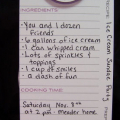 INGREDIENTS:
• You and 1 dozen
friends
• 6 gallons of ice cream
• 1 can whipped cream
• Lots of sprinkles &
toppings
• 1 cup of smiles
• a dash of fun
COOKING TIME:
Saturday Nov. 8th
at 2 pm - Meader home
Ice Cream Sundae Party